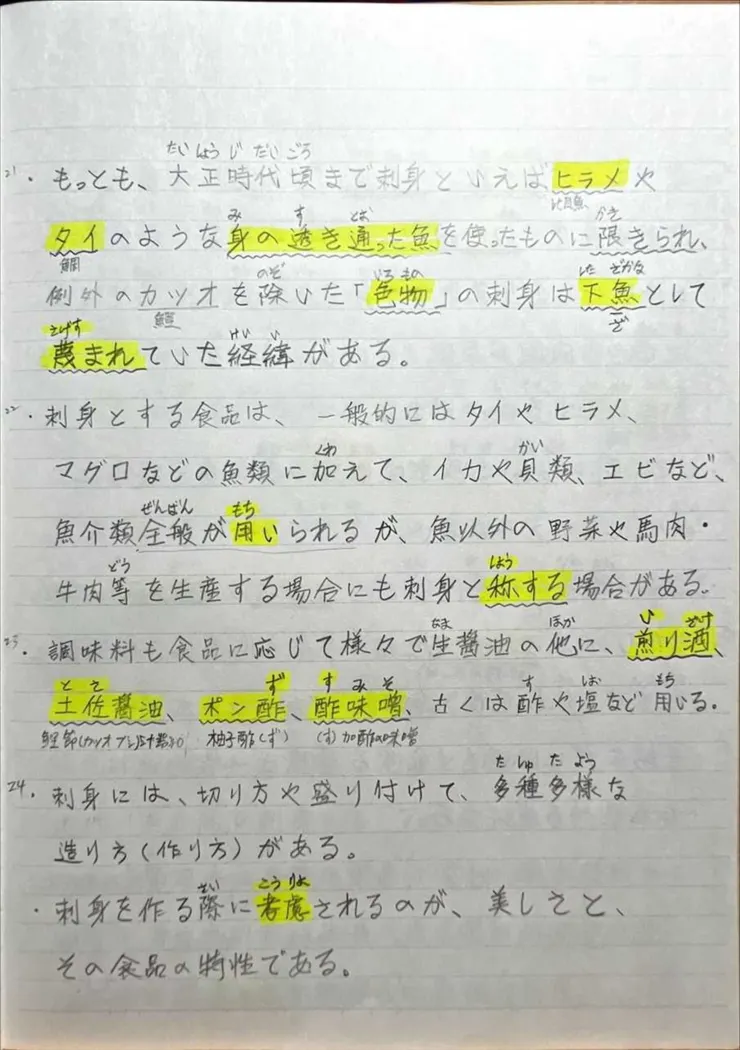 たいしょうじだいごろ
21・もっとも、大正時代頃まで刺身といえばヒラメや
比目魚
み す とお かぎ
タイのような身の透き通った魚を使ったものに限きられ、
鯛 のぞ いろもの したざかな
例外のカツオを除いた「色物」の刺身は下魚として
鰹 ざ
さげす けいい
蔑まれていた経緯がある。
22・刺身とする食品は、一般的にはタイやヒラメ、
くわ かい
マグロなどの魚類に加えて、イカや貝類、エビなど、
ぜんぱん もち
魚介類全般が用いられるが、魚以外の野菜や馬肉・
どう しょう
牛肉等を生産する場合にも刺身と称する場合がある。
なま ほか い ざけ
23・調味料も食品に応じて様々で生醤油の他に、煎り酒、
とさ ず すみそ す しお もち
土佐醤油、ポン酢、酢味噌、古くは酢や塩など用いる。
柚子酢(ず) (す)加酢の味噌
たしゅたよう
24・刺身には、切り方や盛り付けて、多種多様な
造り方(作り方)がある。
さい こうりょ
・刺身を作る際に考慮されるのが、美しさと、
その食品の特性である。